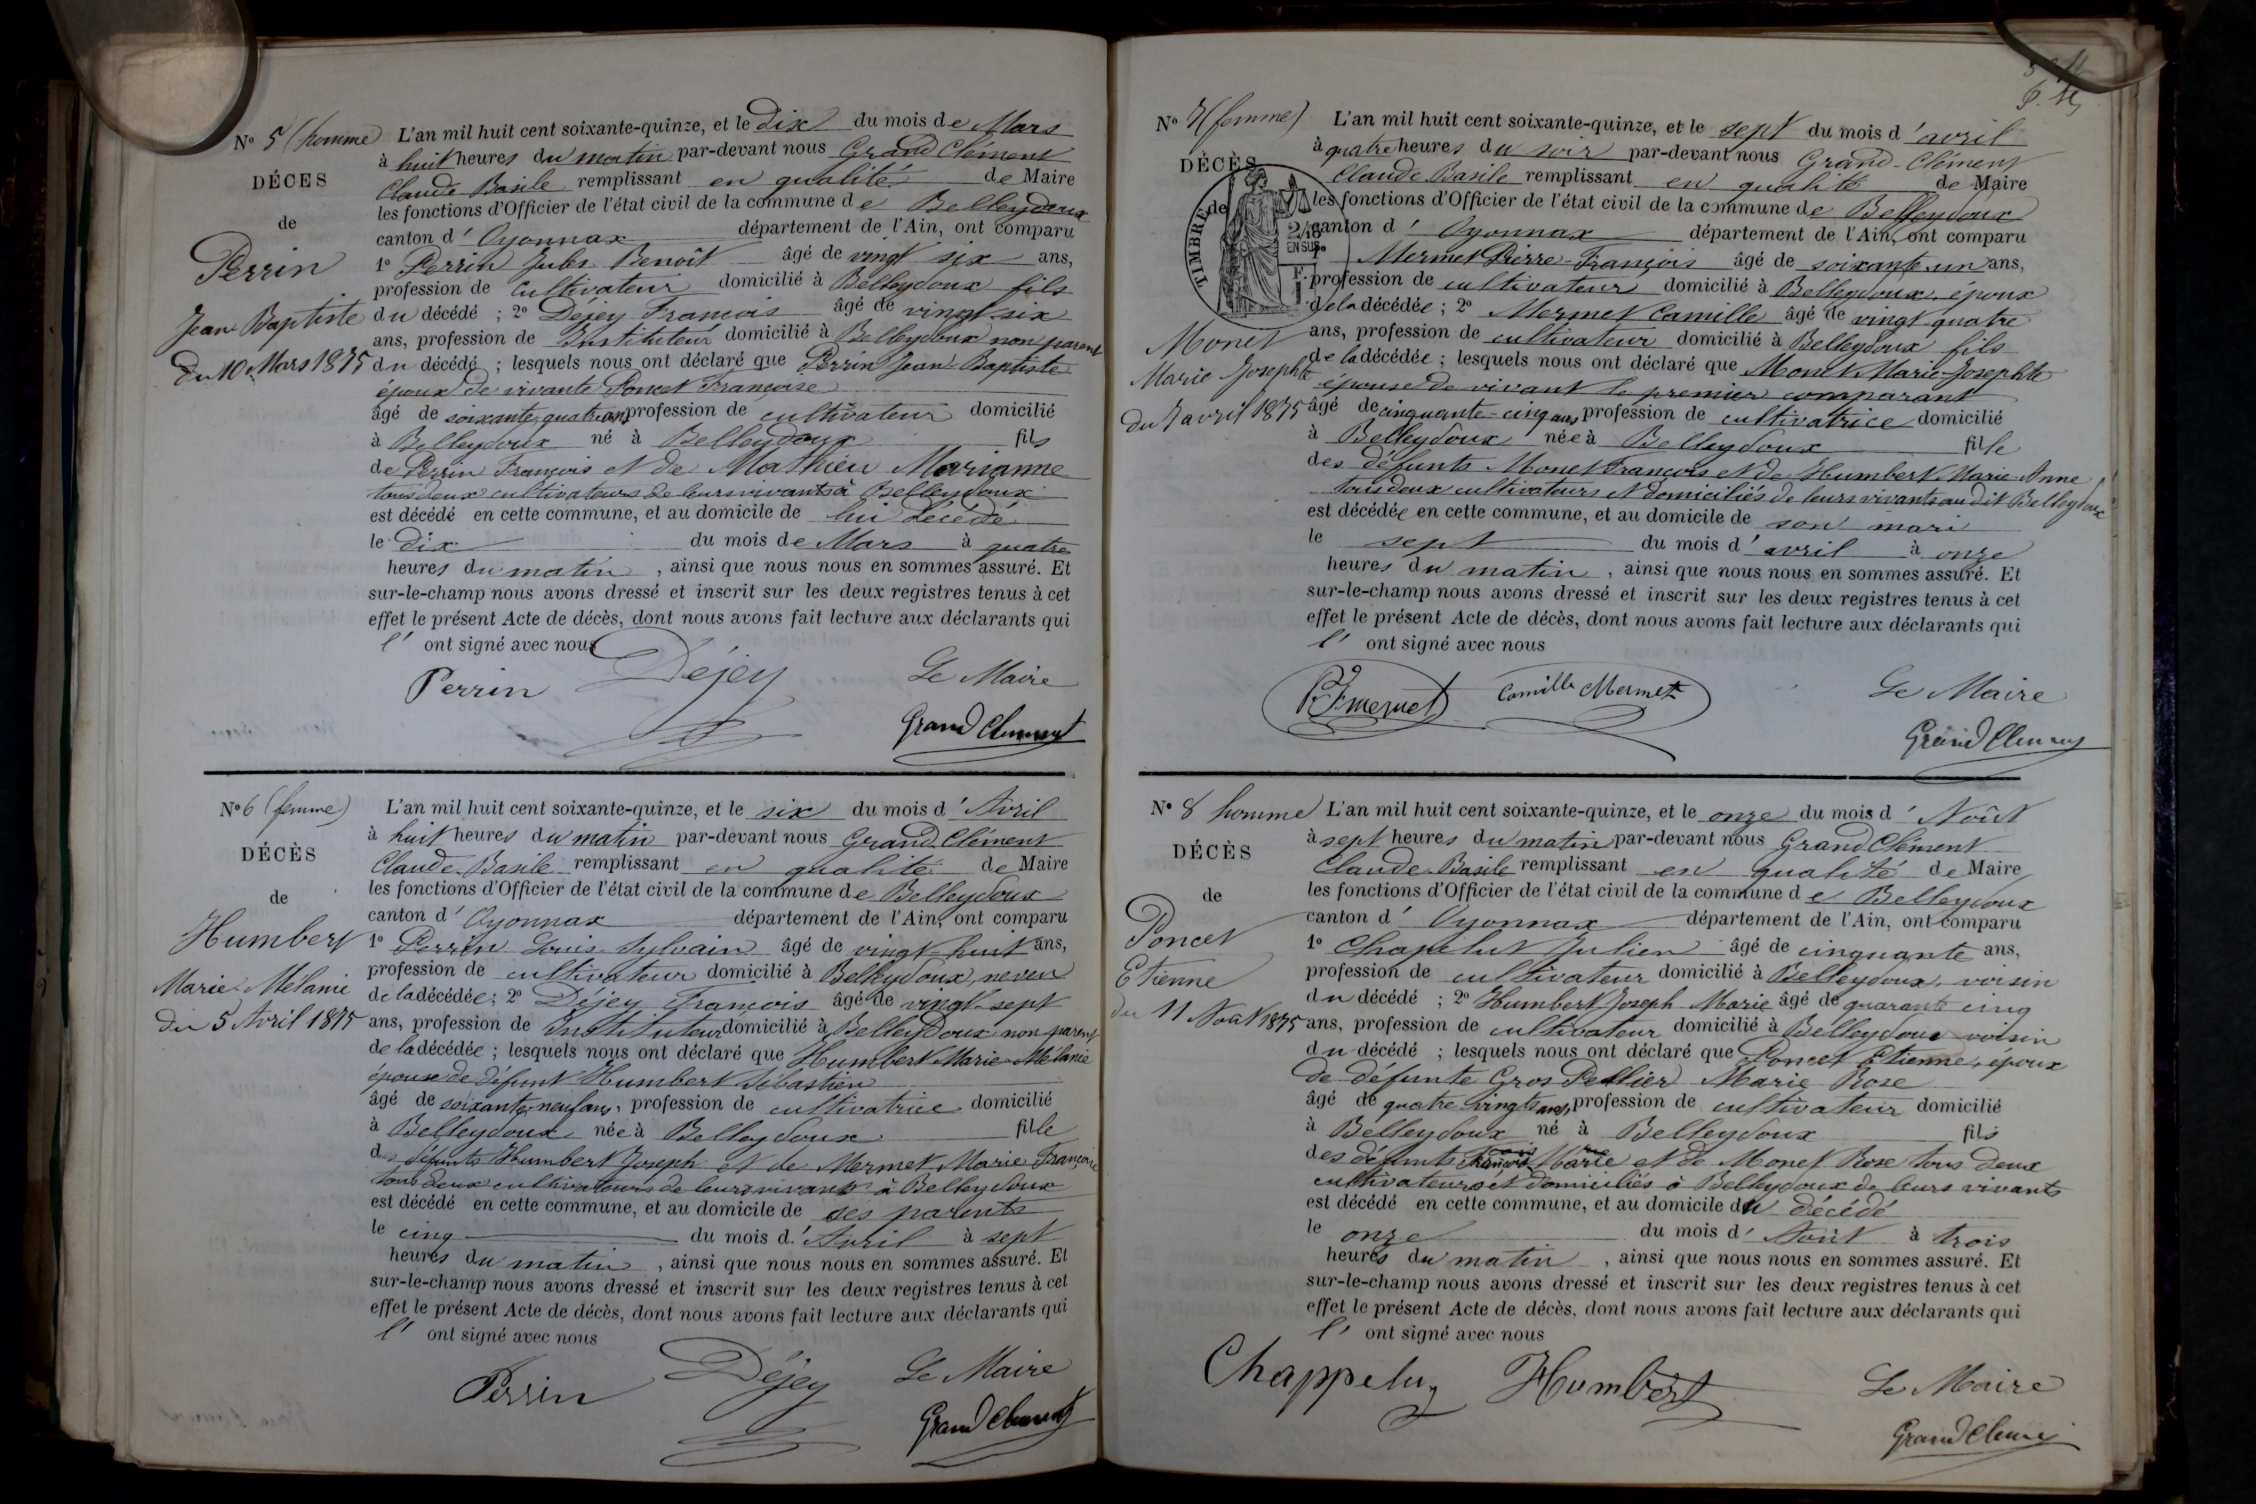 N° 5 (homme)
DÉCES
de
Perrin
Jean Baptiste
du 10 Mars 1875
L'an mil huit cent soixante-quinze, et le dix du mois de Mars
à huit heures du matin par-devant nous Grand Clément
Claude Basile remplissant en qualité de Maire
les fonctions d'Officier de l'état civil de la commune de Belleydoux
canton d' Oyonnax département de l'Ain, ont comparu
1° Perrin Jules Benoît âgé de vingt six ans,
profession de cultivateur domicilié à Belleydoux fils
du décédé ; 2° Déjey François âgé de vingt-six
ans, profession de Instituteur domicilié à Belleydoux non parent
du décédé ; lesquels nous ont déclaré que Perrin Jean Baptiste
époux de vivante Poncet Françoise
âgé de soixante quatre ans profession de cultivateur domicilié
à Belleydoux né à Belleydoux fils
de Perrin François et de Mathieu Marianne
tous deux cultivateurs de leurs vivants à Belleydoux
est décédé en cette commune, et au domicile de lui décédé
le dix du mois de Mars à quatre
heures du matin , ainsi que nous nous en sommes assuré. Et
sur-le-champ nous avons dressé et inscrit sur les deux registres tenus à cet
effet le présent Acte de décès, dont nous avons fait lecture aux déclarants qui
l' ont signé avec nous
Perrin Déjey Le Maire
Grand Clement
N° 6 (femme)
DÉCÈS
de
Humbert
Marie Mélanie
du 5 Avril 1875
L'an mil huit cent soixante-quinze, et le six du mois d' Avril
à huit heures du matin par-devant nous Grand Clément
Claude Basile remplissant en qualité de Maire
les fonctions d'Officier de l'état civil de la commune de Belleydoux
canton d' Oyonnax département de l'Ain, ont comparu
1° Perrin Louis Sylvain âgé de vingt-huit ans,
profession de cultivateur domicilié à Belleydoux, neveu
de la décédée; 2° Déjey François âgé de vingt-sept
ans, profession de Instituteur domicilié à Belleydoux non parent
de la décédée ; lesquels nous ont déclaré que Humbert Marie-Mélanie
épouse de défunt Humbert Sébastien
âgé de soixante-neuf ans, profession de cultivatrice domicilié
à Belleydoux née à Belleydoux fille
des défunts Humbert Joseph et de Mermet Marie Françoise
tous deux cultivateurs de leurs vivants à Belleydoux
est décédé en cette commune, et au domicile de ses parents
le cinq du mois d' Avril à sept
heures du matin , ainsi que nous nous en sommes assuré. Et
sur-le-champ nous avons dressé et inscrit sur les deux registres tenus à cet
effet le présent Acte de décès, dont nous avons fait lecture aux déclarants qui
l' ont signé avec nous
Perrin Déjey Le Maire
Grand Clement
N° 7 (femme)
DÉCÈS
de
TIMBRE
EN SUS
Monet
Marie Josephte
du 7 avril 1875
L'an mil huit cent soixante-quinze, et le sept du mois d' avril
à quatre heures du soir par-devant nous Grand-Clément
Claude Basile remplissant en qualité de Maire
les fonctions d'Officier de l'état civil de la commune de Belleydoux
canton d' Oyonnax département de l'Ain, ont comparu
Mermet Pierre-François âgé de soixante-un ans,
profession de cultivateur domicilié à Belleydoux, époux
de la décédée ; 2° Mermet Camille âgé de vingt quatre
ans, profession de cultivateur domicilié à Belleydoux fils
de la décédée ; lesquels nous ont déclaré que Monet Marie-Josephte
épouse de vivant le premier comparant
âgé de cinquante-cinq ans profession de cultivatrice domicilié
à Belleydoux née à Belleydoux fille
des défunts Monet François et de Humbert Marie-Anne
tous deux cultivateurs et domiciliés de leurs vivants au dit Belleydoux
est décédée en cette commune, et au domicile de son mari
le sept du mois d' avril à onze
heures du matin , ainsi que nous nous en sommes assuré. Et
sur-le-champ nous avons dressé et inscrit sur les deux registres tenus à cet
effet le présent Acte de décès, dont nous avons fait lecture aux déclarants qui
l' ont signé avec nous
P. F. mermet Camille Mermet Le Maire
Grand Clement
N° 8 homme
DÉCÈS
de
Poncet
Etienne
du 11 Août 1875
L'an mil huit cent soixante-quinze, et le onze du mois d' Août
à sept heures du matin par-devant nous Grand Clément
Claude Basile remplissant en qualité de Maire
les fonctions d'Officier de l'état civil de la commune de Belleydoux
canton d' Oyonnax département de l'Ain, ont comparu
1° Chapelut Julien âgé de cinquante ans,
profession de cultivateur domicilié à Belleydoux, voisin
du décédé ; 2° Humbert Joseph Marie âgé de quarante cinq
ans, profession de cultivateur domicilié à Belleydoux voisin
du décédé ; lesquels nous ont déclaré que Poncet Etienne, époux
de défunte Gros Pellier Marie Rose
âgé de quatre vingts ans, profession de cultivateur domicilié
à Belleydoux né à Belleydoux fils
des défunts François Marie et de Monet Rose tous deux
cultivateurs et domiciliés à Belleydoux de leurs vivants
est décédé en cette commune, et au domicile du décédé
le onze du mois d' Août à trois
heures du matin , ainsi que nous nous en sommes assuré. Et
sur-le-champ nous avons dressé et inscrit sur les deux registres tenus à cet
effet le présent Acte de décès, dont nous avons fait lecture aux déclarants qui
l' ont signé avec nous
Chappelu Humbert Le Maire
Grand Clement